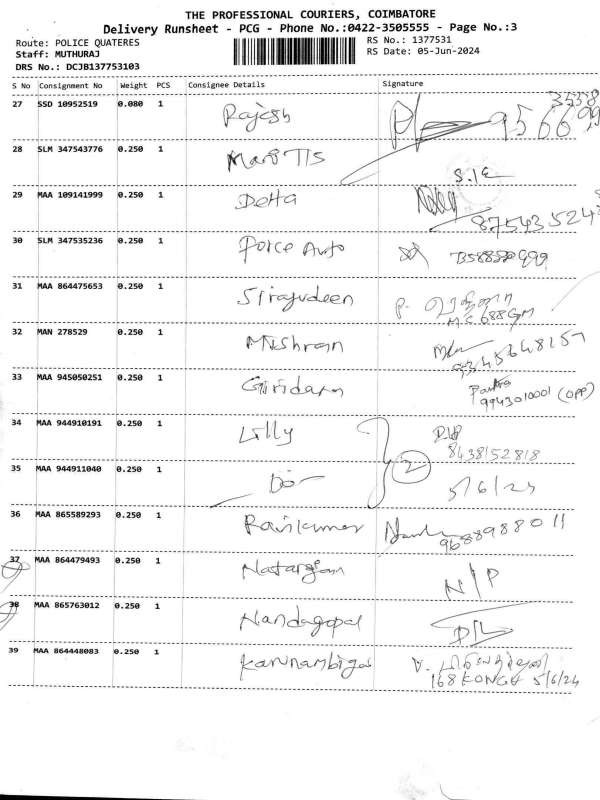 THE PROFESSIONAL COURIERS, COIMBATORE
Delivery Runsheet - PCG - Phone No.:0422-3505555 - Page No.:3
Route: POLICE QUATERES RS No.: 1377531
Staff: MUTHURAJ RS Date: 05-Jun-2024
DRS No.: DCJB137753103
S No Consignment No Weight PCS Consignee Details Signature
27 SSD 10952519 0.080 1 Rajesh
28 SLM 347543776 0.250 1
29 MAA 109141999 0.250 1 Delta
30 SLM 347535236 0.250 1 Force Auto
31 MAA 864475653 0.250 1 Sirajudeen
32 MAN 278529 0.250 1
9345648157
33 MAA 945050251 0.250 1 Giridarn
9943010001 (OPP)
34 MAA 944910191 0.250 1 Lilly
8438152818
2
35 MAA 944911040 0.250 1 Do 5/6/24
36 MAA 865589293 0.250 1 Ravikumar
9688988011
37 MAA 864479493 0.250 1 Natarajan N/P
38 MAA 865763012 0.250 1 Nandagopal D/L
39 MAA 864448083 0.250 1
168 KONGU 5/6/24